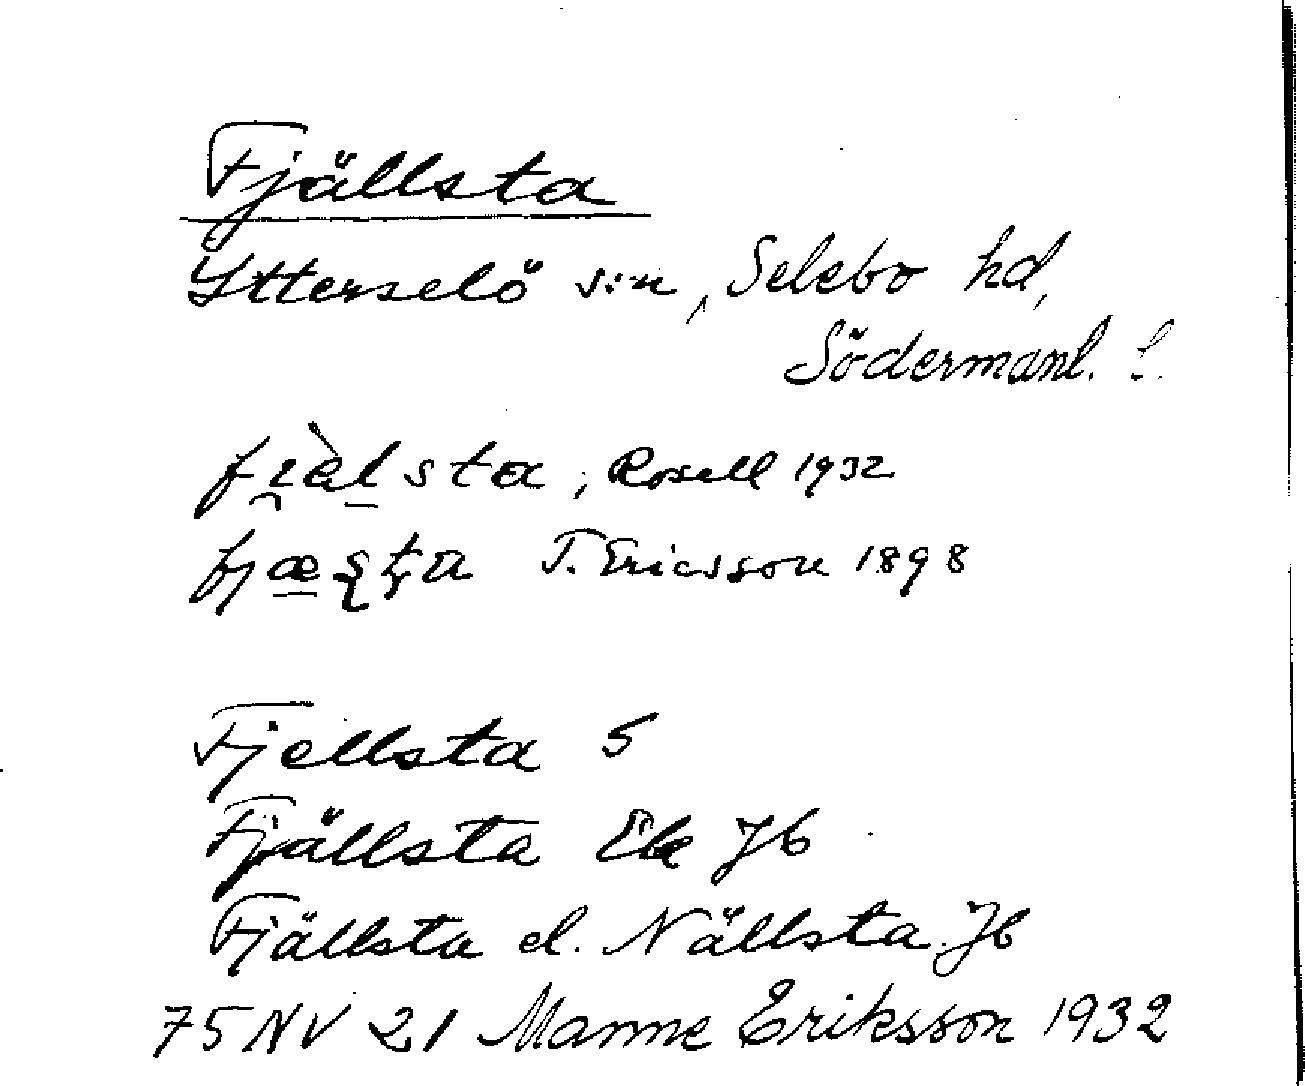 Fjällsta
Ytterselö s:n, Selebo hd,
Södermanl. l.
fi̯èl̠sta, Rosell 1932
fjæ̠ʂʈa T. Ericsson 1898
Fjellsta 5
Fjällsta Ek Jb
Fjällsta el. Nällsta Jb
75 NV 21 Manne Eriksson 1932